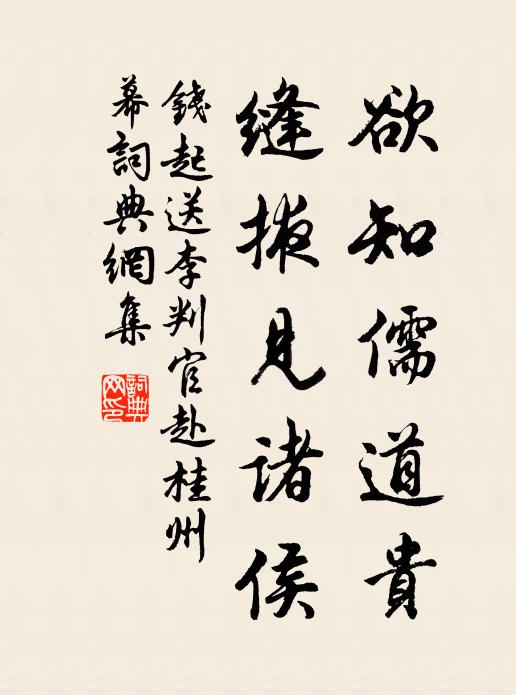 欲知儒道貴
縫掖見諸侯
錢起送李判官赴桂州
幕詞典網集
詞典網印